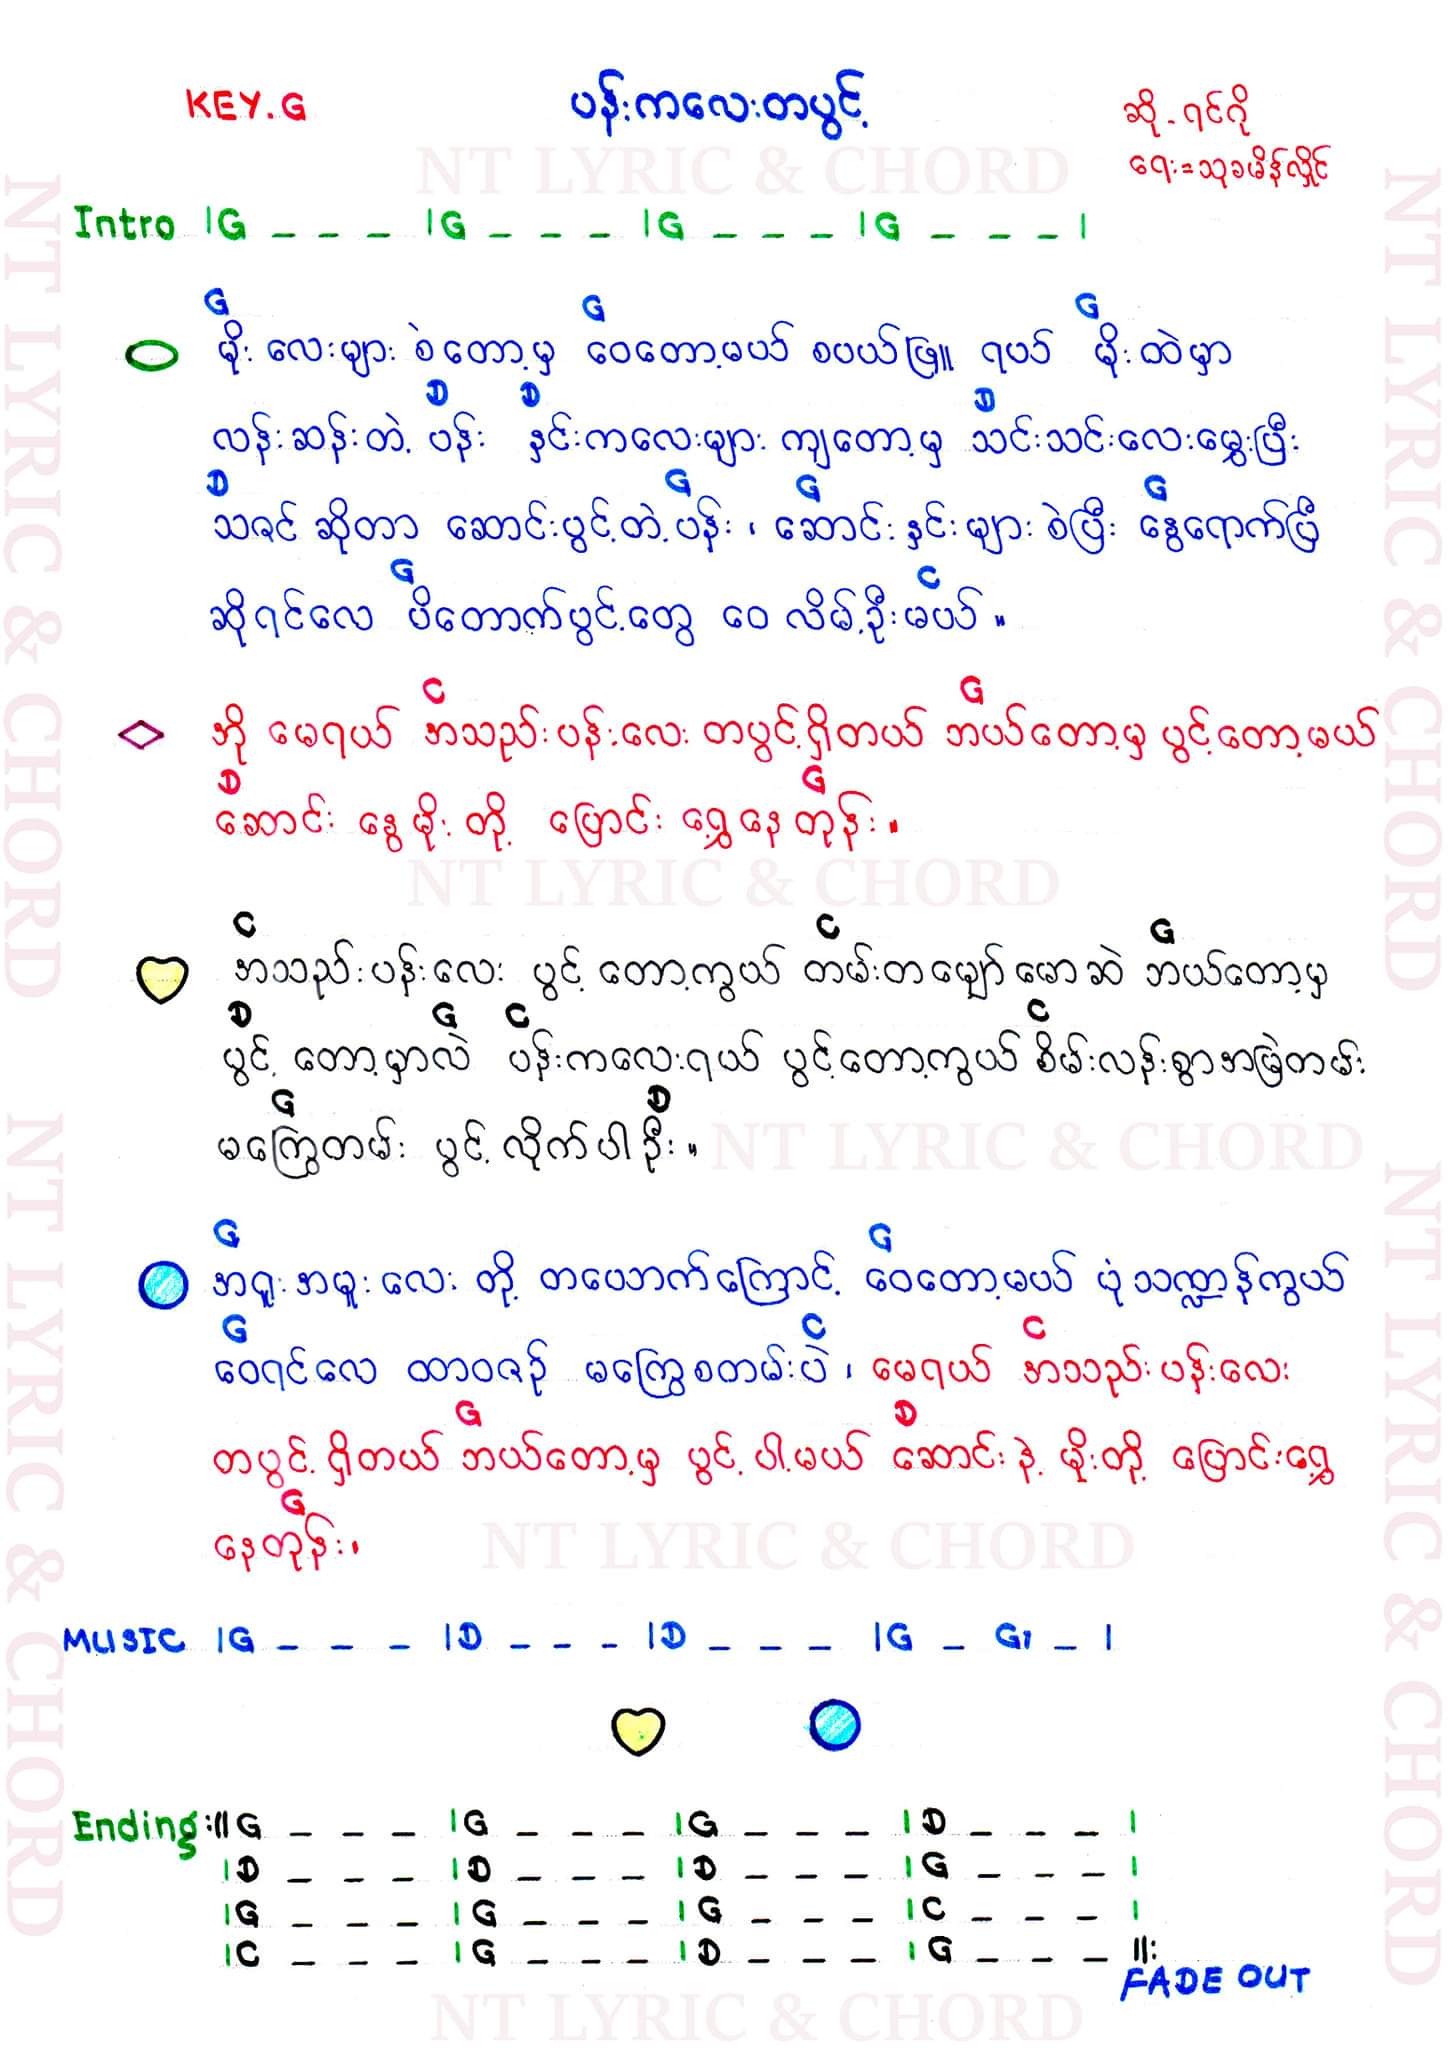 KEY.G
ပန်းကလေးတပွင့်
ဆို-ရင်ဂို
ရေး=သုခမိန်လှိုင်
NT LYRIC & CHORD
Intro |G _ _ _ |G _ _ _ |G _ _ _ |G _ _ _ |
G G G
မိုးလေးများ စဲတော့မှ ဝေတော့မယ် စပယ်ဖြူ။ ရယ် မိုးထဲမှာ
D D D
လန်းဆန်းတဲ့ ပန်း နှင်းကလေးများ ကျတော့မှ သင်းသင်းလေးမွှေးပြီး
D G G G
သဇင် ဆိုတာ ဆောင်းပွင့်တဲ့ ပန်း ၊ ဆောင်းနှင်းများ စဲပြီး နွေရောက်ပြီ
G C
ဆိုရင်လေ ပိတောက်ပွင့်တွေ ဝေ လိမ့်ဦးမယ် ။
C G
ဘို မေရယ် အသည်းပန်းလေး တပွင့်ရှိတယ် ဘယ်တော့မှ ပွင့်တော့မယ်
D G
ဆောင်း နွေမိုး တို့ ပြောင်း ရွှေ့နေ တုန်း ။
NT LYRIC & CHORD
C C G
အသည်းပန်းလေး ပွင့် တော့ကွယ် တမ်းတမျှော်မောဆဲ ဘယ်တော့မှ
D G C C
ပွင့် တော့မှာလဲ ပန်းကလေးရယ် ပွင့်တော့ကွယ် စိမ်းလန်းစွာအမြဲတမ်း
G D
မကြွေတမ်း ပွင့် လိုက်ပါဦး ။
NT LYRIC & CHORD
G G
အရူးအမူးလေး တို့ တယောက်ကြောင့် ဝေတော့မယ် ပုံသဏ္ဍာန်ကွယ်
G C C
ဝေရင်လေ ထာဝစဉ် မကြွေစတမ်းပဲ ၊ မေရယ် အသည်းပန်းလေး
G D
တပွင့် ရှိတယ် ဘယ်တော့မှ ပွင့်ပါ့မယ် ဆောင်းနဲ့ မိုးတို့ ပြောင်းရွှေ့
G
နေတုန်း ၊
NT LYRIC & CHORD
MUSIC |G _ _ _ |D _ _ _ |D _ _ _ |G _ G7 _ |
Ending :||G _ _ _ |G _ _ _ |G _ _ _ |D _ _ _ |
|D _ _ _ |D _ _ _ |D _ _ _ |G _ _ _ |
|G _ _ _ |G _ _ _ |G _ _ _ |C _ _ _ |
|C _ _ _ |G _ _ _ |D _ _ _ |G _ _ _ ||:
FADE OUT
NT LYRIC & CHORD
NT LYRIC & CHORD
NT LYRIC & CHORD
NT LYRIC & CHORD
NT LYRIC & CHORD